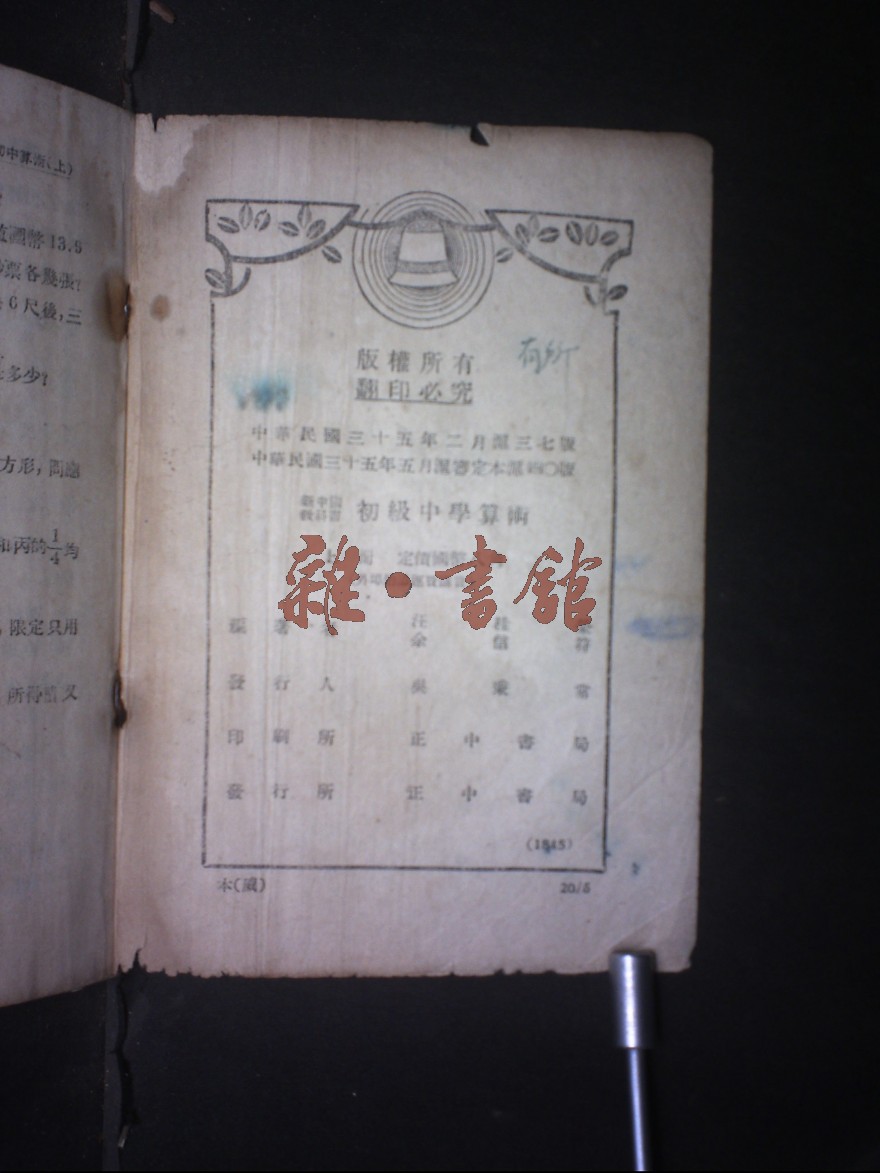 初中算術(上)
國幣13.6
票各幾張?
6尺後,三
多少?
方形,問應
和丙的1/4均
限定只用
所得應又
版權所有
翻印必究
中華民國三十五年二月滬三七版
中華民國三十五年五月滬審定本滬四〇版
新中國
教科書
初級中學算術
定價國幣
雜·書館
編著
汪桂
余信符
發行人 吳秉常
印刷所 正中書局
發行所 正中書局
(1845)
本(滬)
20/5